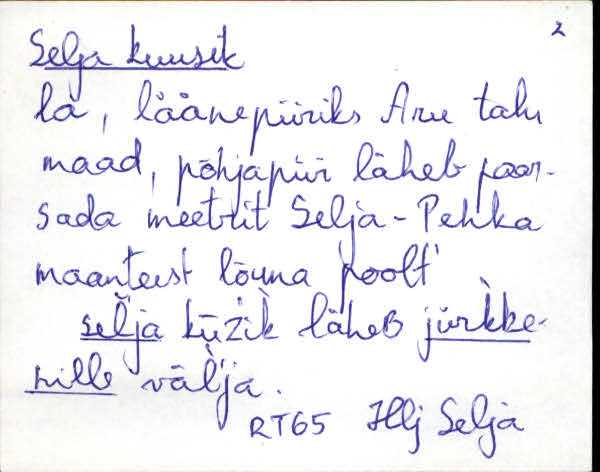 2
Selja kuusik
la, läänepiiriks Aru talu
maad, põhjapiir läheb paar-
sada meetrit Selja-Pehka
maanteest lõuna poolt
sel̆ja küz̀ik̀ läheB jürk̀ke-
nille väl̀'ja.
RT65 Hlj Selja